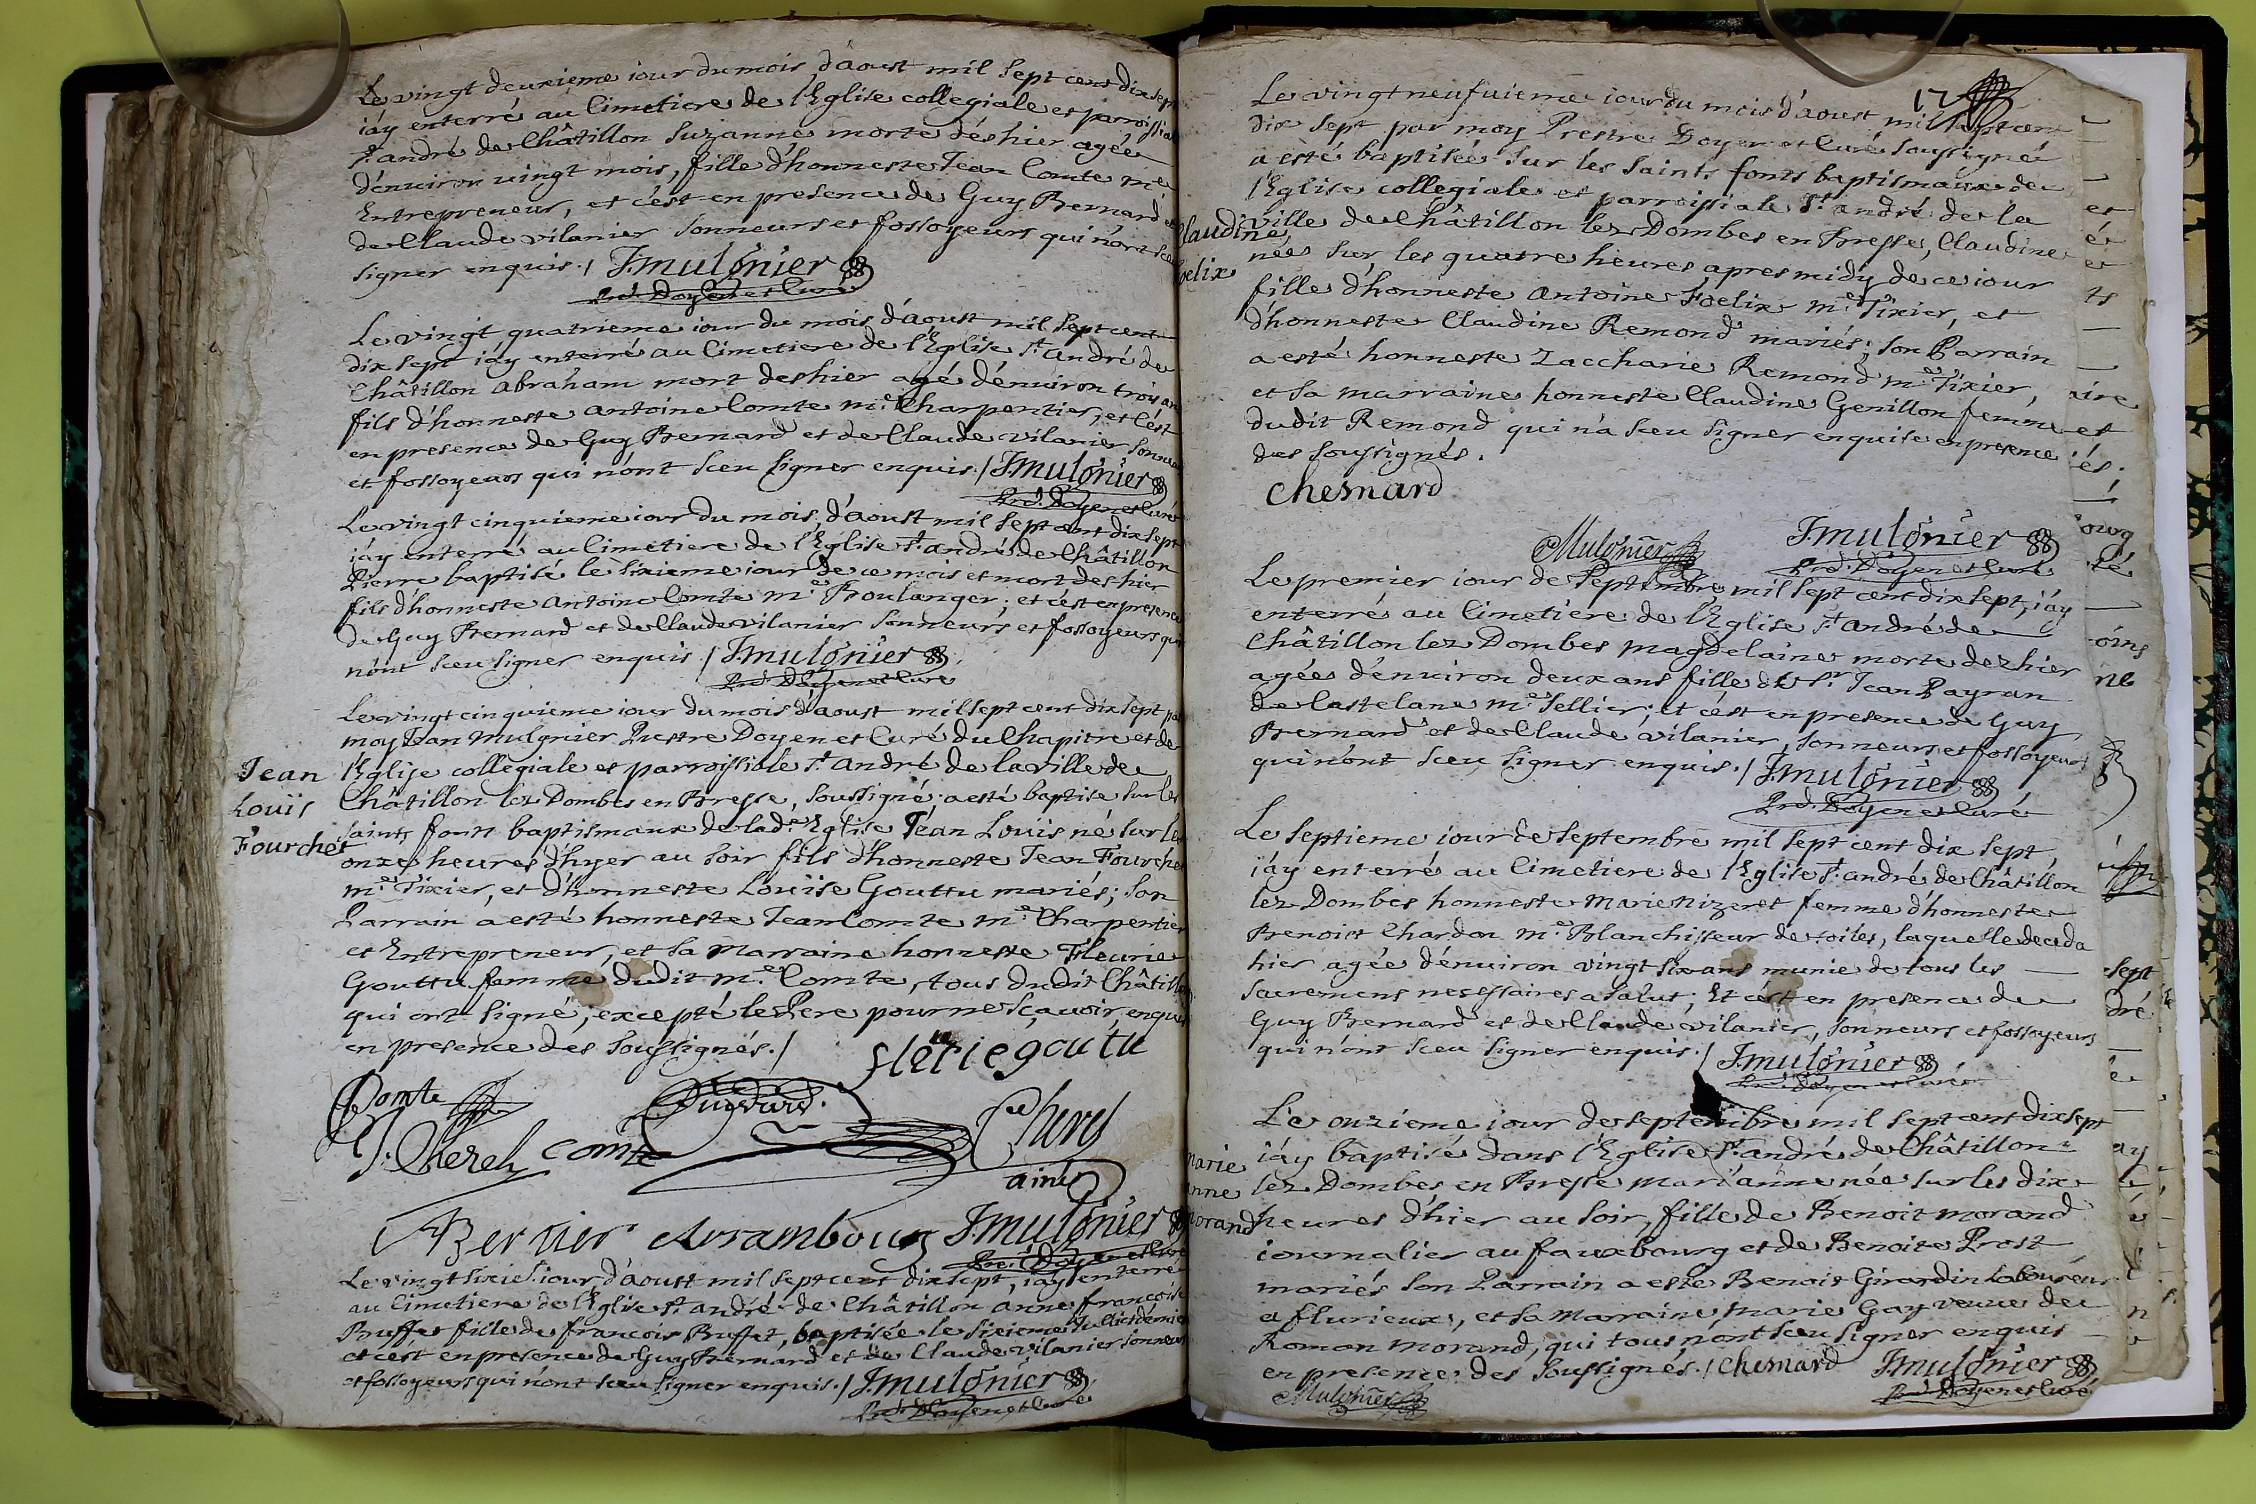 Le vingt deuxieme iour du mois d'aoust mil sept cent dix sept
i'ay enterré au Cimetiere de l'Eglise collegiale et parroissiale
st andré de Châtillon Suzanne morte dés hier agée
d'enuiron vingt mois, fille d'honneste Jean Comte me
Entrepreneur, et c'est en presence de Guy Bernard et
de Claude vilanier sonneurs et fossoyeurs qui n'ont sceu
signer enquis./ J.mulonier
Prê. Doyen et Curé
Le vingt quatrieme iour du mois d'aoust mil sept cent
dix sept i'ay enterré au Cimetiere de l'Eglise st. André de
Châtillon abraham mort des hier agé d'enuiron trois ans
fils d'honneste antoine Comte me. Charpentier, et c'est
en presence de Guy Bernard et de Claude vilanier sonneurs
et fossoyeurs qui n'ont sceu signer enquis./ J.mulonier
Prê. Doyen et Curé
Le vingt cinquieme iour du mois d'aoust mil sept cent dix sept
i'ay enterré au Cimetiere de l'Eglise st. andré de Châtillon
Pierre baptisé le sixieme iour de ce mois et mort des hier
fils d'honneste antoine Comte me Boulanger; et c'est en presence
de Guy Bernard et de Claude vilanier sonneurs et fossoyeurs qui
n'ont sceu signer enquis./ J.mulonier
Prê. Doyen et Curé
Le vingt cinquieme iour du mois d'aoust mil sept cent dix sept par
moy Jean Mulonier Prestre Doyen et Curé du Chapitre et de
Jean l'Eglise collegiale et parroissiale st. André de la ville de
Louïs Châtillon lez Dombes en Bresse, soussigné; a esté baptisé sur les
Fourchet saints fonts baptismaux de lad.e Eglise Jean Louis né sur les
onze heures d'hyer au soir fils d'honneste Jean Fourchet
me Tixier, et d'honneste Louïse Gouttu mariés; son
Parrain a esté honneste Jean Comte me. Charpentier
et Entrepreneur, et sa marraine honneste Fleurie
Gouttu femme dudit me. Comte, tous dudit Châtillon
qui ont signé, excepté le Pere pour ne sçavoir enquis
en presence des soussignés./ fleürie goutu
Comte
J. Cherel comte Cherel
ainé
Bernier Arrambourg J.mulonier
Prê. Doyen et Curé
Le vingt sixie. iour d'aoust mil sept cent dix sept, i'ay enterré
au Cimetiere de l'Eglise st. andré de Châtillon anne françoise
Buffet fille de francois Buffet, baptisée le sixieme
et c'est en presence de Guy Bernard et de Claude vilanier sonneurs
et fossoyeurs qui n'ont sceu signer enquis./ J.mulonier
Prê. Doyen et Curé
17
Le vingt neufuieme iour du mois d'aoust mil sept cent
dix sept par moy Prestre Doyen et Curé soussigné
a esté baptisée sur les saints fonts baptismaux de
l'Eglise collegiale et parroissiale st. andré de la
Claudine ville de Châtillon lez Dombes en Bresse, Claudine
foelix née sur les quatre heures apres midy de ce iour
fille d'honneste Antoine Foelix me. Tixier, et
d'honneste Claudine Remond mariés; son Parrain
a esté honneste Zaccharie Remond me Tixier,
et sa marraine honneste Claudine Genillon femme
dudit Remond qui n'a sceu signer enquise en presence
des soussignés.
Chesnard
Mulonier J.mulonier
Prê. Doyen et Curé
Le premier iour de septembre mil sept cent dix sept, i'ay
enterré au Cimetiere de l'Eglise st andré de
Châtillon lez Dombes magdelaine morte dez hier
agée d'enuiron deux ans fille de sr. Jean Payran
de Castelane me. Sellier; et c'est en presence de Guy
Bernard et de Claude vilanier, sonneurs et fossoyeurs
qui n'ont sceu signer enquis./ J.mulonier
Prê. Doyen et Curé
Le septieme iour de septembre mil sept cent dix sept
i'ay enterré au Cimetiere de l'Eglise st. andré de Châtillon
lez Dombes honneste Marie Nizeret femme d'honneste
Benoist Chardon me. Blanchisseur de toiles, laquelle deceda
hier agée d'enuiron vingt six ans munie de tous les
sacremens necessaires a salut; Et c'est en presence de
Guy Bernard et de Claude vilanier, sonneurs et fossoyeurs
qui n'ont sceu signer enquis./ J.mulonier
Prê. Doyen et Curé
Le onzieme iour de septembre mil sept cent dix sept
marie i'ay baptisé dans l'Eglise st. andré de Châtillon
anne lez Dombes en Bresse mari'anne née sur les dix
morand heures d'hier au soir, fille de Benoit morand
iournalier au fauxbourg et de Benoite Prost
mariés son Parrain a este Benoit Girardin laboureur
a flurieux, et sa marraine marie Gay veuve de
Romon morand, qui tous n'ont sceu signer enquis
en presence des soussignés./ Chesnard J.mulonier
Mulonier Prê. Doyen et Curé